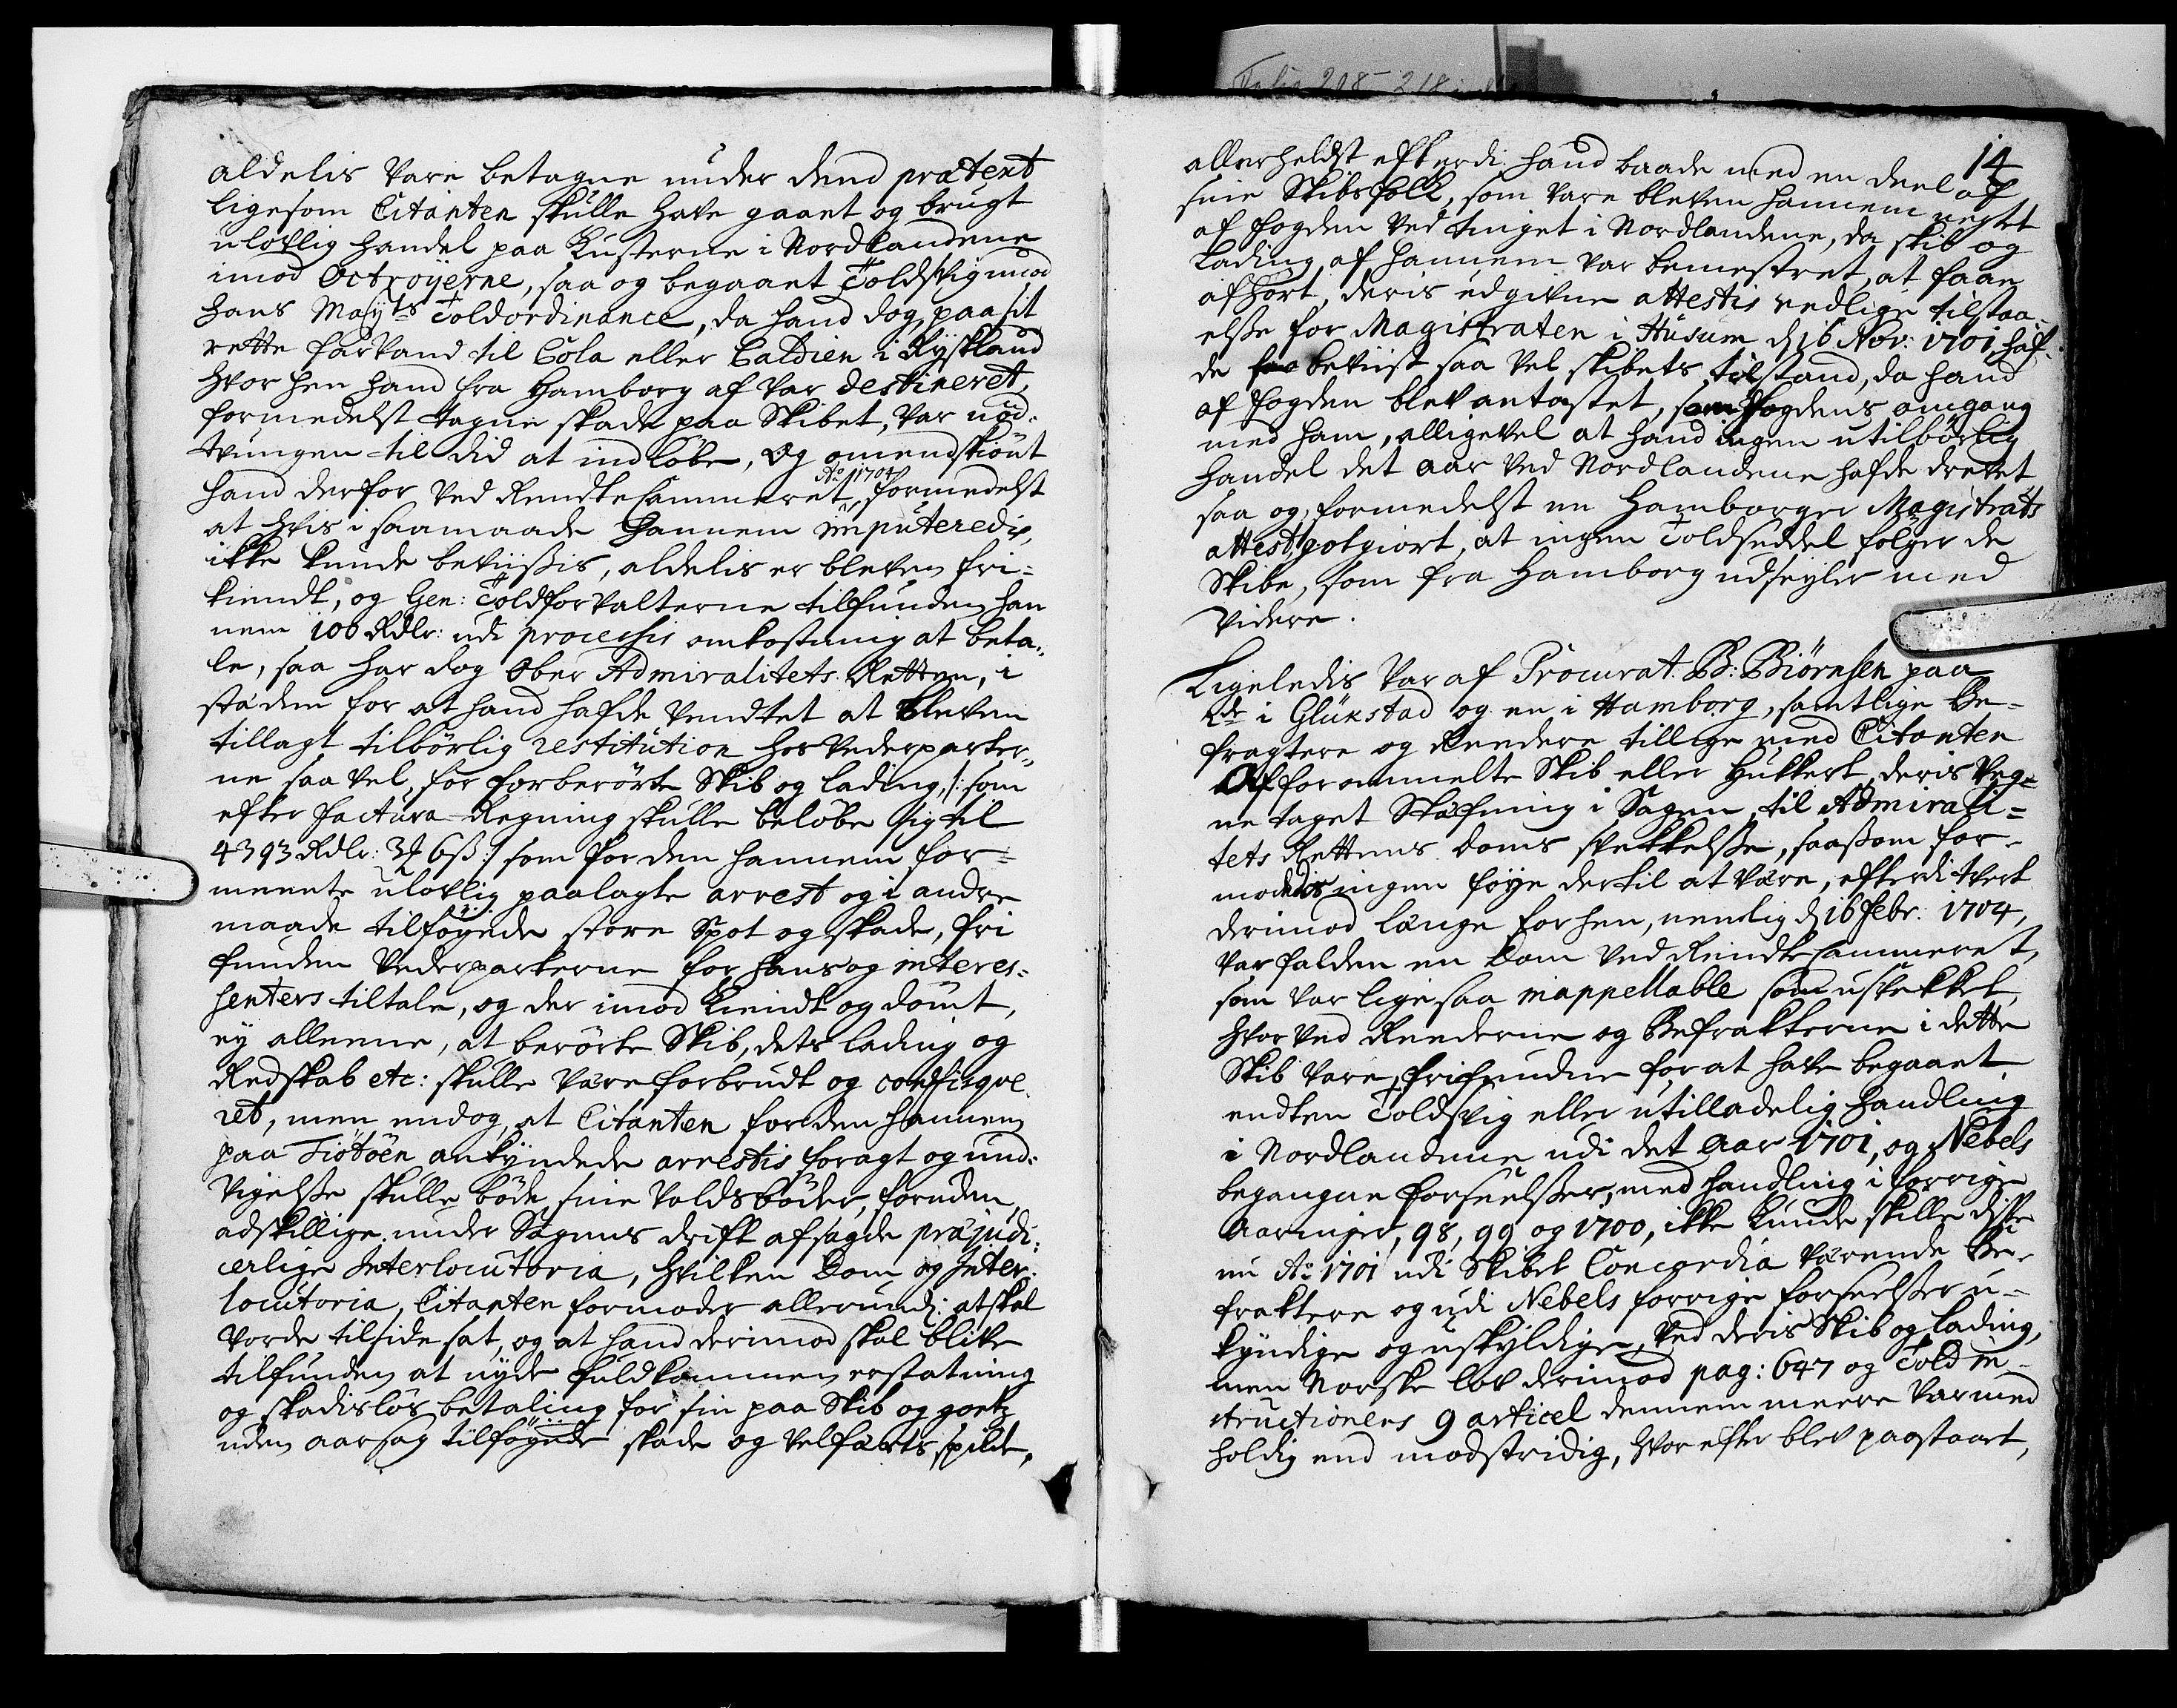 Folio 208 - 218
aldelis vare betagne under dend prætext
ligesom Citanten skulle have gaaet og brugt
ulovlig handel paa Kusterne i Nordlandene
imod Octroÿerne, saa og begaaet Toldsvig mod
hans Maÿts Toldordinance, da hand dog, paa sit
rette farvand til Cola eller Caldien i Rÿsland
hvor hen hand fra Hamborg af var destineret,
formedelst tagne skade paa Skibet, var nød-
tvungen til did at indløbe, Og omendskiønt
Ao 1704
hand derfor ved Rendtekammeret, formedelst
at hvis i saamaade hannem imputeredis,
ikke kunde beviißis, aldelis er bleven fri-
kiendt, og Gen: Toldforvalterne tilfunden han
nem 100 Rdlr: udi processis omkostning at beta-
le, saa har dog Ober Admiralitets Retten, i
stæden for at hand hafde ventet at bleven
tillagt tilbørlig restitution hos Vederparter-
ne saa vel, for forberørte Skib og lading, /: som
efter factura Regning skulle beløbe sig til
4393 Rdlr: 3 6 ß :/ som for den hannem for-
meente ulovlig paalagte arrest og i andre
maade tilføÿede store Spot og skade, fri
funden Vederparterne for hans og interes-
senters tiltale, og der imod kiendt og dømt,
eÿ alleene, at berørte Skib, dets lading og
Redskab etc: skulle være forbrudt og confisqve
ret, men endog, at Citanten for den hannem
paa Tiøtøen ankÿndede arrestis foragt og und-
vigelße skulle bøde sine Voldsbøder, foruden
adskillige under Sagens drift afsagde præjudi-
cerlige Interlocutoria, hvilken Dom og Inter-
locutoria, Citanten formoder allerund: at skal
vorde tilside sat, og at hand derimod skal blive
tilfunden at nÿde fuldkommen erstatning
og skadisløs betaling for sin paa Skib og goetz
uden aarsag tilføÿede skade og velfærts spilde,
14
allerheldst efterdi hand baade med en deel af
sine Skibsfolk, som vare bleven hannem negtet
af fogden ved tinget i Nordlandene, da skib og
Lading af hannem var bemestret, at faae
afhørt, deris udgivne attestis edlige tilstaa-
elße for Magistraten i Husum d 16 Nov: 1701, haf-
de beviist saa vel skibets tilstand, da hand
af fogden blev antastet, som fogdens omgang
med ham, alligevel at hand ingen utilbørlig
handel det Aar ved Nordlandene hafde drevet
saa og formedelst en Hamborger Magistrats
attest, gotgiort, at ingen Toldseddel følger de
Skibe, som fra Hamborg udseÿler med
videre.
Ligeledis var af Procurat: B: Biørnsen paa
2de i Glükstad og en i Hamborg, samtlige Be-
fragtere og Reedere tillige med Citanten
Af forommelte Skib eller Hukkert, deris Veg-
ne taget Stæfning i Sagen til Admirali-
tets Rettens doms svekkelße, saaßom for-
modedis ingen føÿe dertil at være, efterdi tvert
derimod længe forhen, nemlig d 16 Febr. 1704,
var falden en Dom ved Rendtekammeret,
som var ligesaa inappellable som usvekket,
hvorved Reederne og Befrakterne i dette
Skib vare frifundne for at have begaaet
endten Toldsvig eller utilladelig handling
i Nordlandene udi det Aar 1701, og Nebels
begangne forseelßer, med handling i forrige
Aaringer, 98, 99 og 1700, ikke kunde skille diße
nu Ao 1701 udi Skibet Concordia værende Be-
fraktere og udi Nebels forrige forseelßer u-
kÿndige og uskÿldige, ved deris Skib og lading,
men Norske lov derimod pag: 647 og Told in-
structionens 9 articel dennem meere var med
holdig end modstridig, hvor efter blev paastaaet,